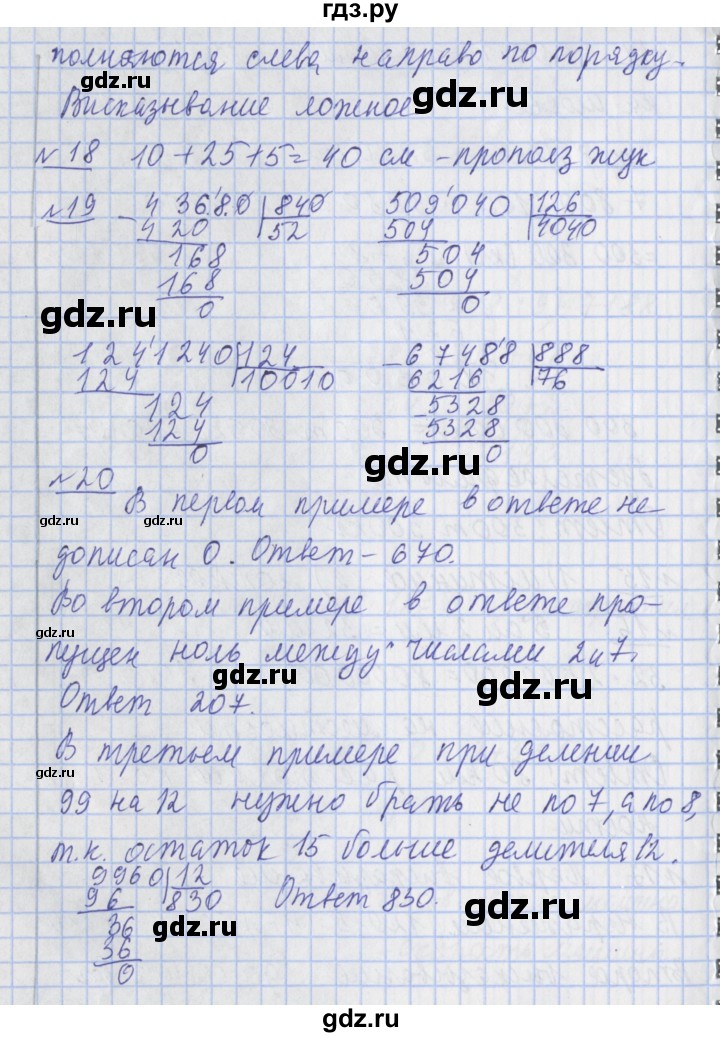 гдз.ру
полняются слева направо по порядку.
gdz.ru
Высказывание ложное
gdz.ru
№18 10+25+5=40 см - прополз жук
№19 - 43680 | 840 509040 | 126
420 52 504 4040
168 504
168 504
0 0
gdz.ru gdz.ru
1241240 | 124 - 67488 | 888
124 10010 6216 76
124 - 5328
124 5328
0 0
gdz.ru
№20
В первом примере в ответе не-
gdz.ru gdz.ru
дописан 0. Ответ - 670.
Во втором примере в ответе про-
gdz.ru
пущен ноль между числами 2 и 7.
gdz.ru
Ответ 207.
В третьем примере при делении
gdz.ru
99 на 12 нужно брать не по 7, а по 8,
т.к. остаток 15 больше делителя 12.
9960 | 12 Ответ 830.
96 830
36
36
0
gdz.ru gdz.ru
gdz.ru